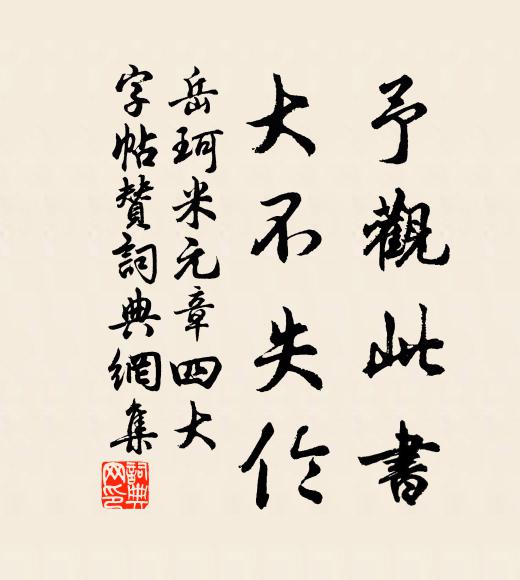 予觀此書
大不失倫
岳珂米元章四大
字帖贊詞典網集
詞典
网印